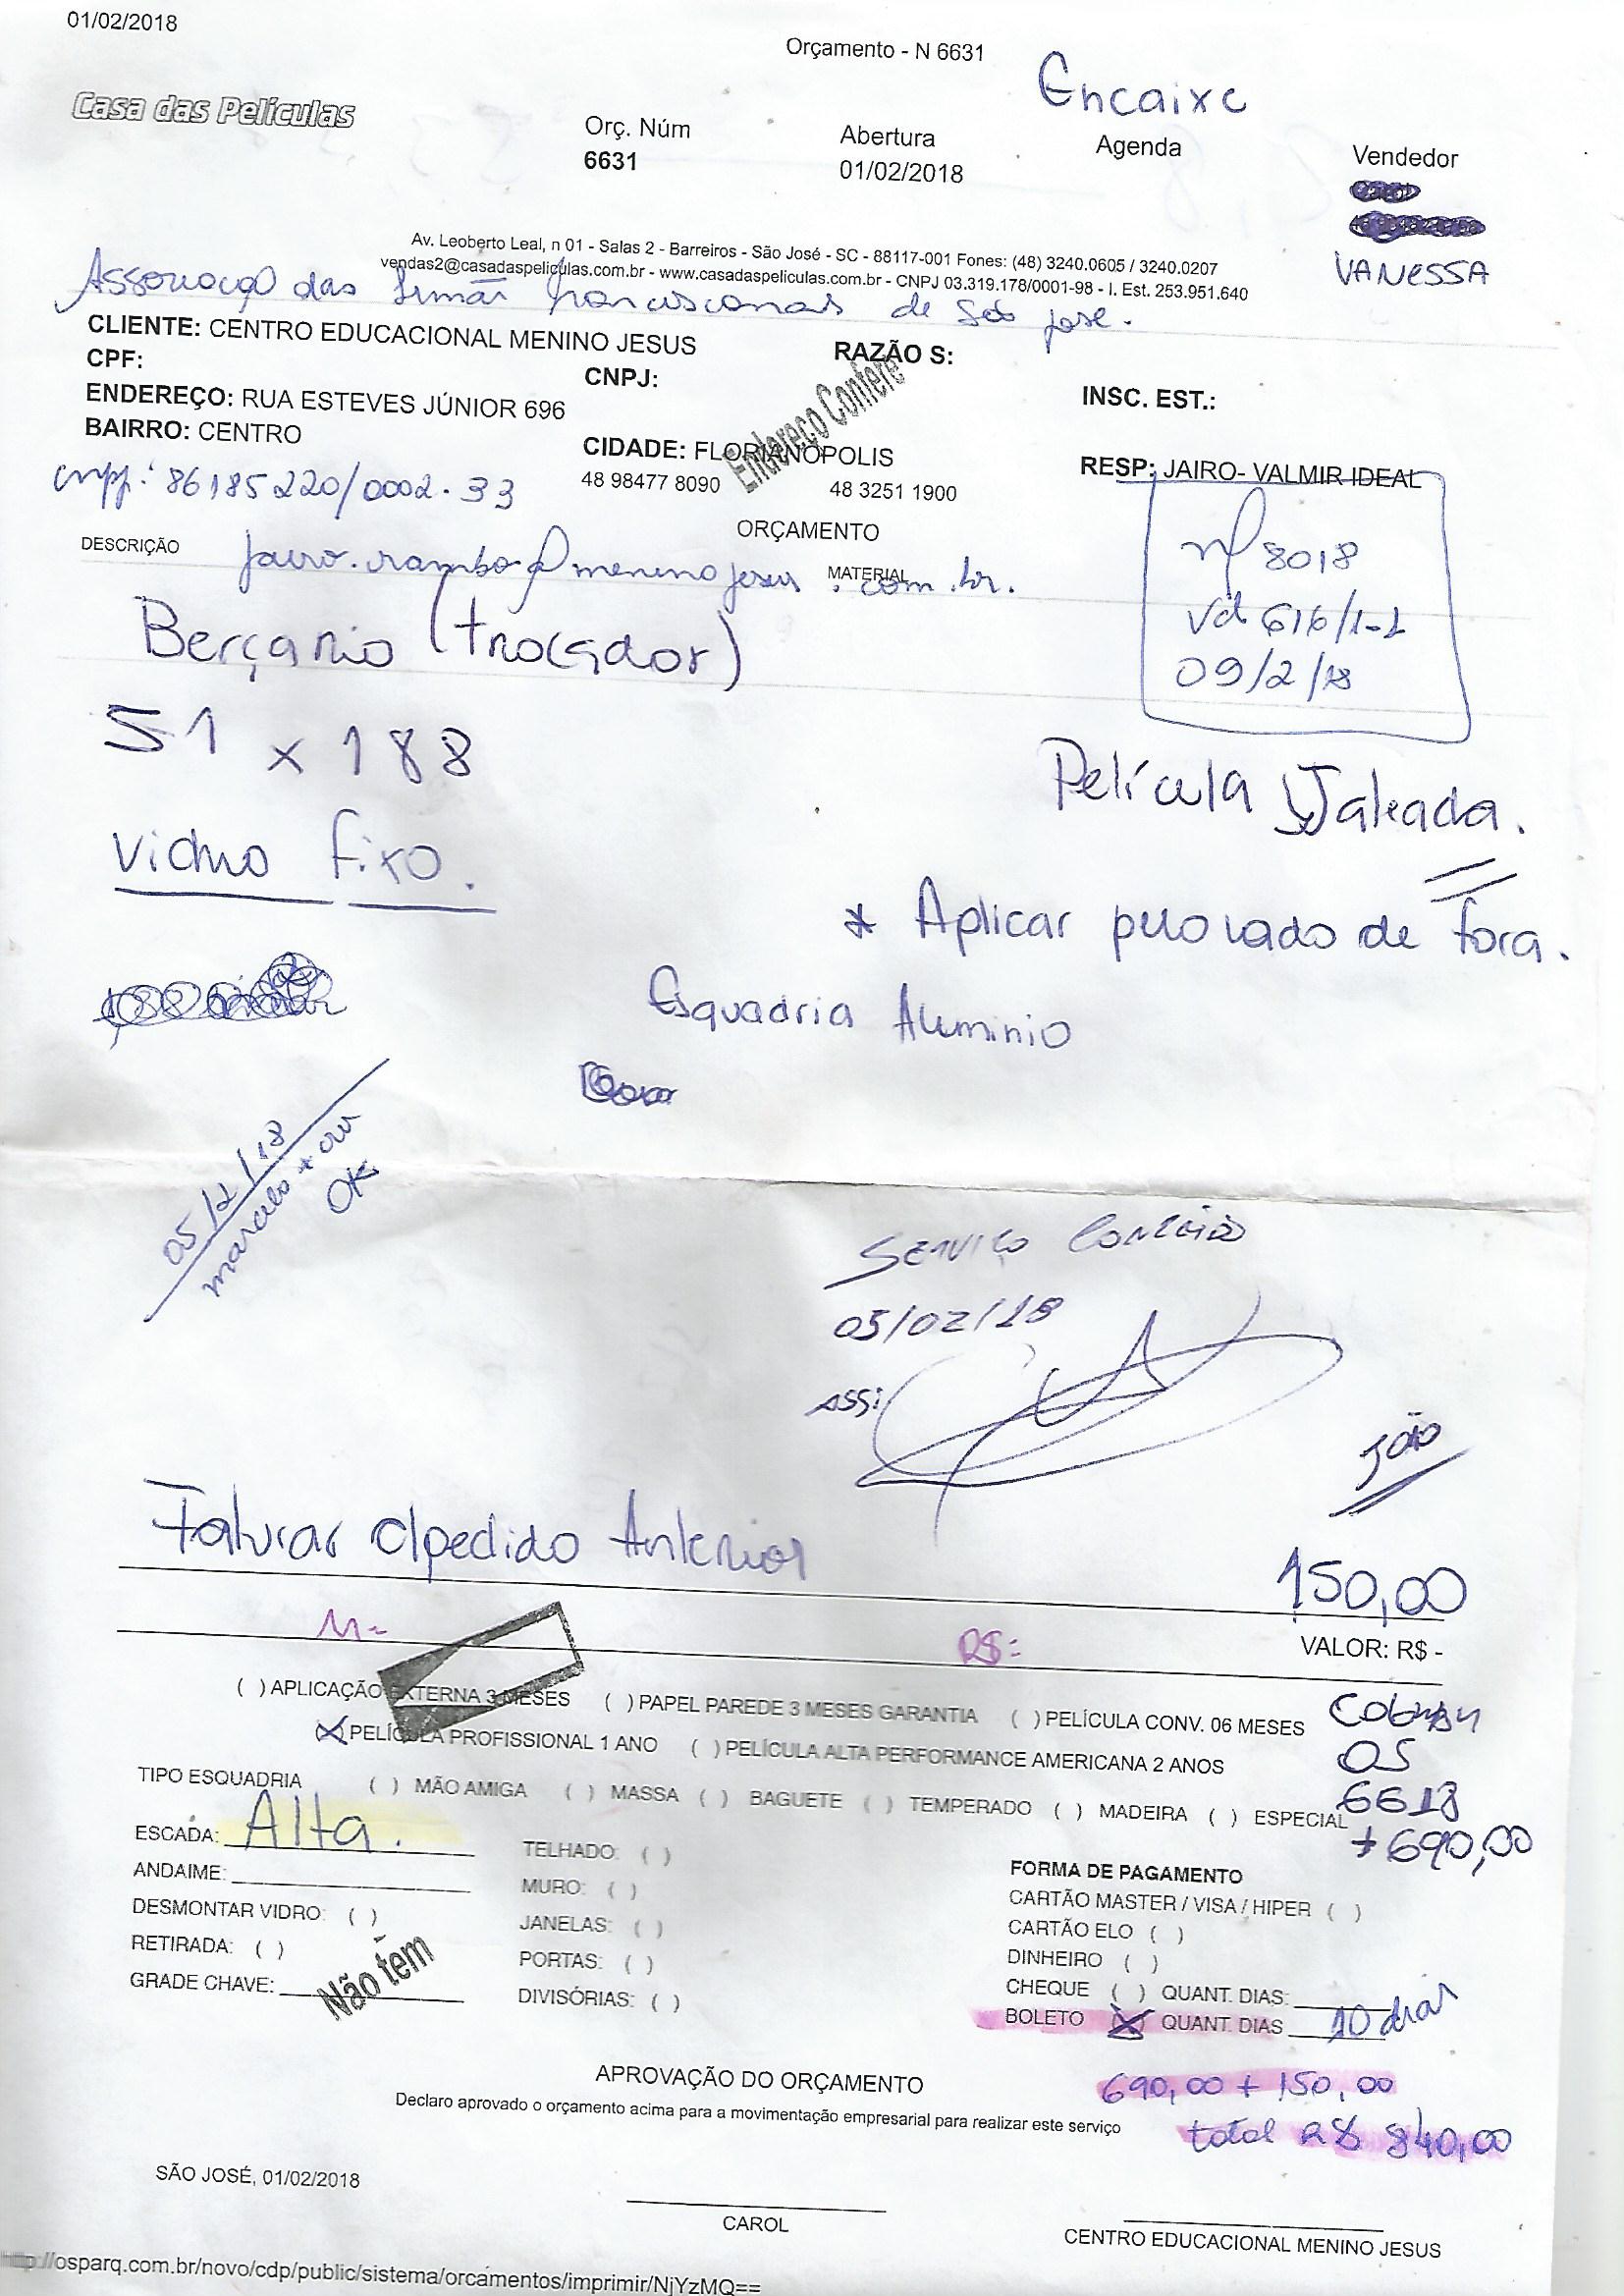 01/02/2018
Orçamento - N 6631
Encaixe
Casa das Películas
Orç. Núm
6631
Abertura
01/02/2018
Agenda
Vendedor
VANESSA
Av. Leoberto Leal, n 01 - Salas 2 - Barreiros - São José - SC - 88117-001 Fones: (48) 3240.0605 / 3240.0207
vendas2@casadaspeliculas.com.br - www.casadaspeliculas.com.br - CNPJ 03.319.178/0001-98 - I. Est. 253.951.640
Associação das Irmãs franciscanas de São José.
CLIENTE: CENTRO EDUCACIONAL MENINO JESUS
RAZÃO S:
CPF:
CNPJ:
INSC. EST.:
ENDEREÇO: RUA ESTEVES JÚNIOR 696
Endereço Confere
BAIRRO: CENTRO
CIDADE: FLORIANÓPOLIS
RESP: JAIRO- VALMIR IDEAL
cnpj: 86185220/0002-33
48 98477 8090
48 3251 1900
ORÇAMENTO
DESCRIÇÃO
MATERIAL
jairo.rambo@meninojesus.com.br.
nf 8018
vd 616/1-1
09/2/18
Berçario (trocador)
51 x 188
Película Jateada.
vidro fixo.
* Aplicar pelo lado de fora.
Esquadria Aluminio
05/2/18
marcelo +
OK
Serviço Concluído
05/02/18
ASS:
João
Faturar c/pedido Anterior
150,00
M=
R$=
VALOR: R$ -
( ) APLICAÇÃO EXTERNA 3 MESES ( ) PAPEL PAREDE 3 MESES GARANTIA ( ) PELÍCULA CONV. 06 MESES
(X) PELÍCULA PROFISSIONAL 1 ANO ( ) PELÍCULA ALTA PERFORMANCE AMERICANA 2 ANOS
OS
6613
+ 690,00
TIPO ESQUADRIA ( ) MÃO AMIGA ( ) MASSA ( ) BAGUETE ( ) TEMPERADO ( ) MADEIRA ( ) ESPECIAL
ESCADA: Alta.
ANDAIME:
DESMONTAR VIDRO: ( )
RETIRADA: ( )
GRADE CHAVE:
Não tem
TELHADO: ( )
MURO: ( )
JANELAS: ( )
PORTAS: ( )
DIVISÓRIAS: ( )
FORMA DE PAGAMENTO
CARTÃO MASTER / VISA / HIPER ( )
CARTÃO ELO ( )
DINHEIRO ( )
CHEQUE ( ) QUANT. DIAS:
BOLETO (X) QUANT. DIAS 10 dias
APROVAÇÃO DO ORÇAMENTO
690,00 + 150,00
Declaro aprovado o orçamento acima para a movimentação empresarial para realizar este serviço
total R$ 840,00
SÃO JOSÉ, 01/02/2018
CAROL
CENTRO EDUCACIONAL MENINO JESUS
http://osparq.com.br/novo/cdp/public/sistema/orcamentos/imprimir/NjYzMQ==